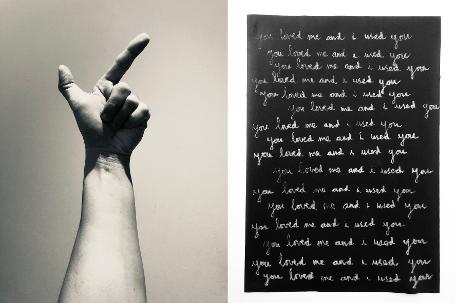 you loved me and i used you
you loved me and i used you
you loved me and i used you
you loved me and i used you
you loved me and i used you
you loved me and i used you
you loved me and i used you
you loved me and i used you
you loved me and i used you
you loved me and i used you
you loved me and i used you
you loved me and i used you
you loved me and i used you
you loved me and i used you
you loved me and i used you
you loved me and i used you